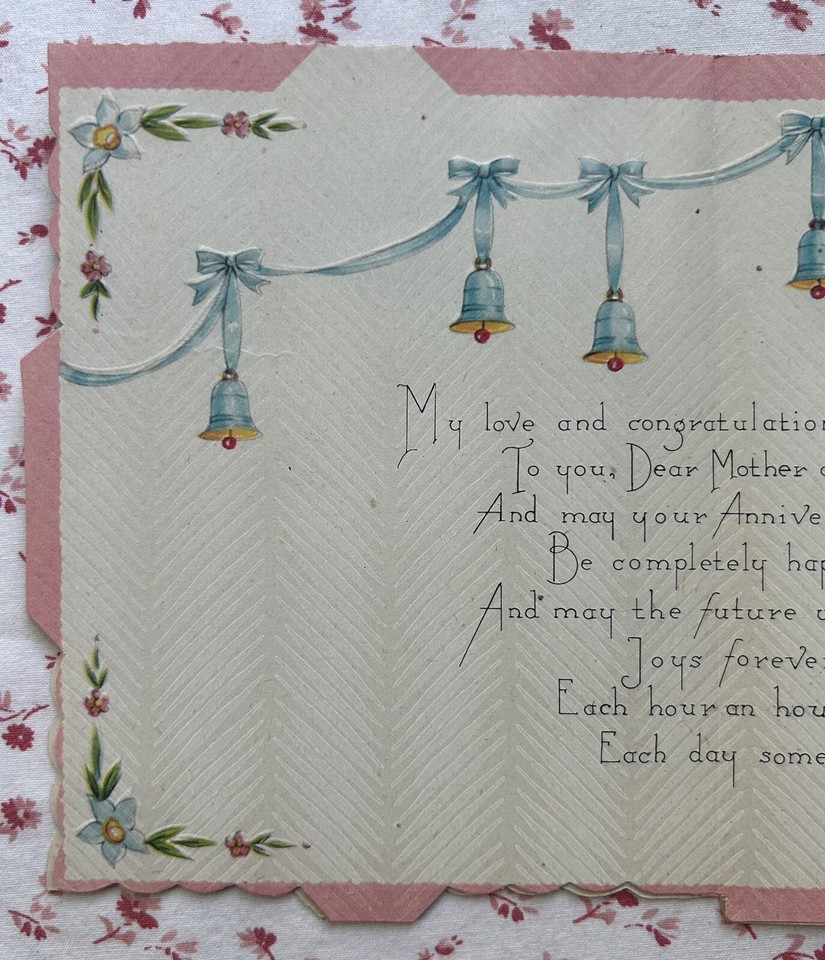 My love and congratulation
To you, Dear Mother
And may your Annive
Be completely hap
And may the future
Joys foreve
Each hour an hou
Each day some